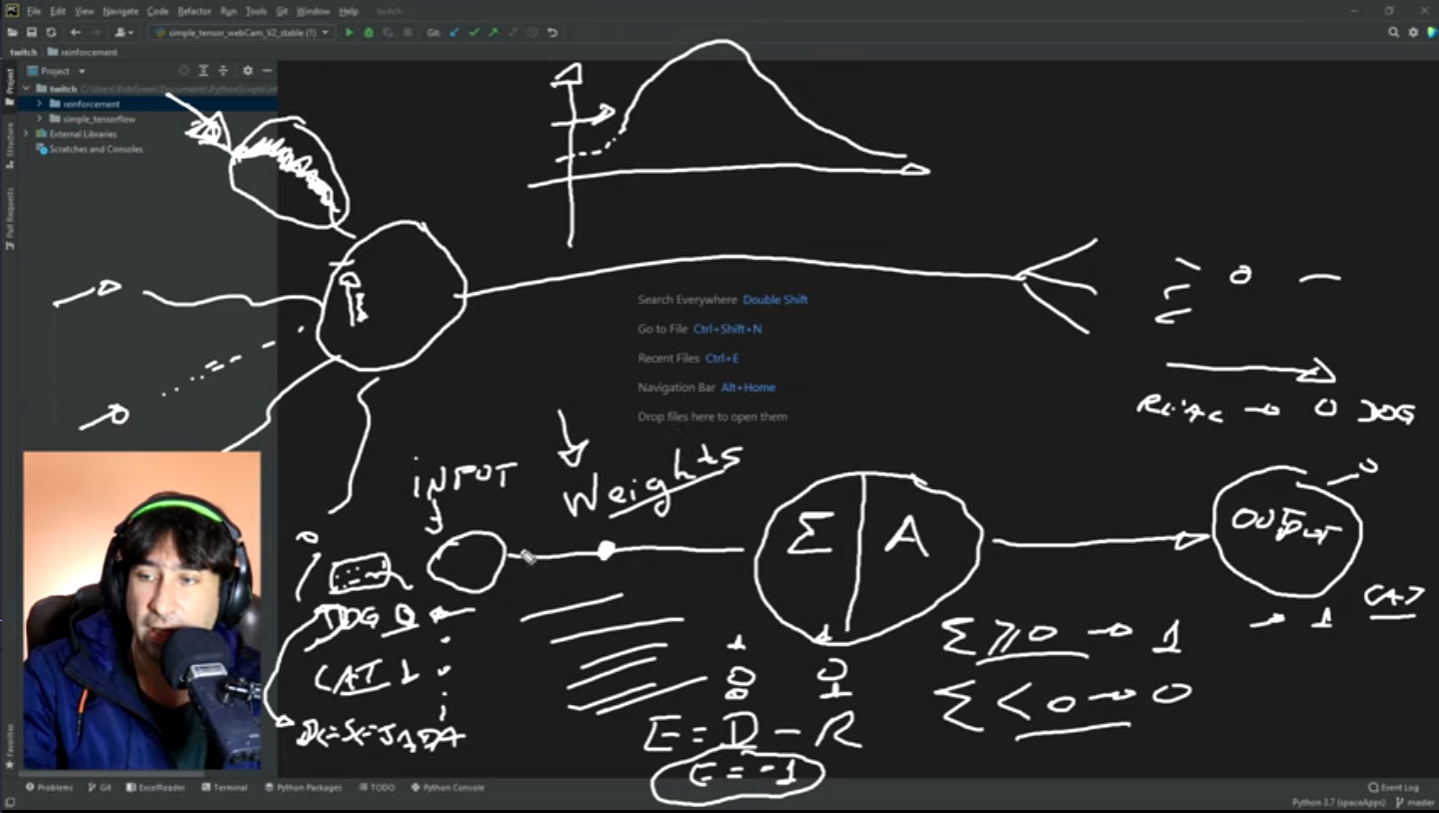 File Edit View Navigate Code Refactor Run Tools Git Window Help twitch
simple_tensor_webCam_V2_stable (1) Git:
twitch reinforcement
Project
Project
twitch
reinforcement
simple_tensorflow
External Libraries
Scratches and Consoles
Structure
Pull Requests
Search Everywhere Double Shift
Go to File Ctrl+Shift+N
Recent Files Ctrl+E
Navigation Bar Alt+Home
Drop files here to open them
0 DOG
INPUT
Weights
Σ A
OUTPUT
0
1 CAT
DOG 0
CAT 1
Σ ≥ 0 → 1
Σ < 0 → 0
E = D - R
E = -1
Favorites
Problems Git ExcelReader Terminal Python Packages TODO Python Console
Event Log
Python 3.7 (spaceApps) master